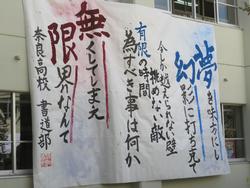 夢を味方にも
幻影に打ち克て
今しか超えられない壁
挑めない敵
有限の時間
為すべき事は何か
無くしてしまえ
限界なんて
奈良高校 書道部